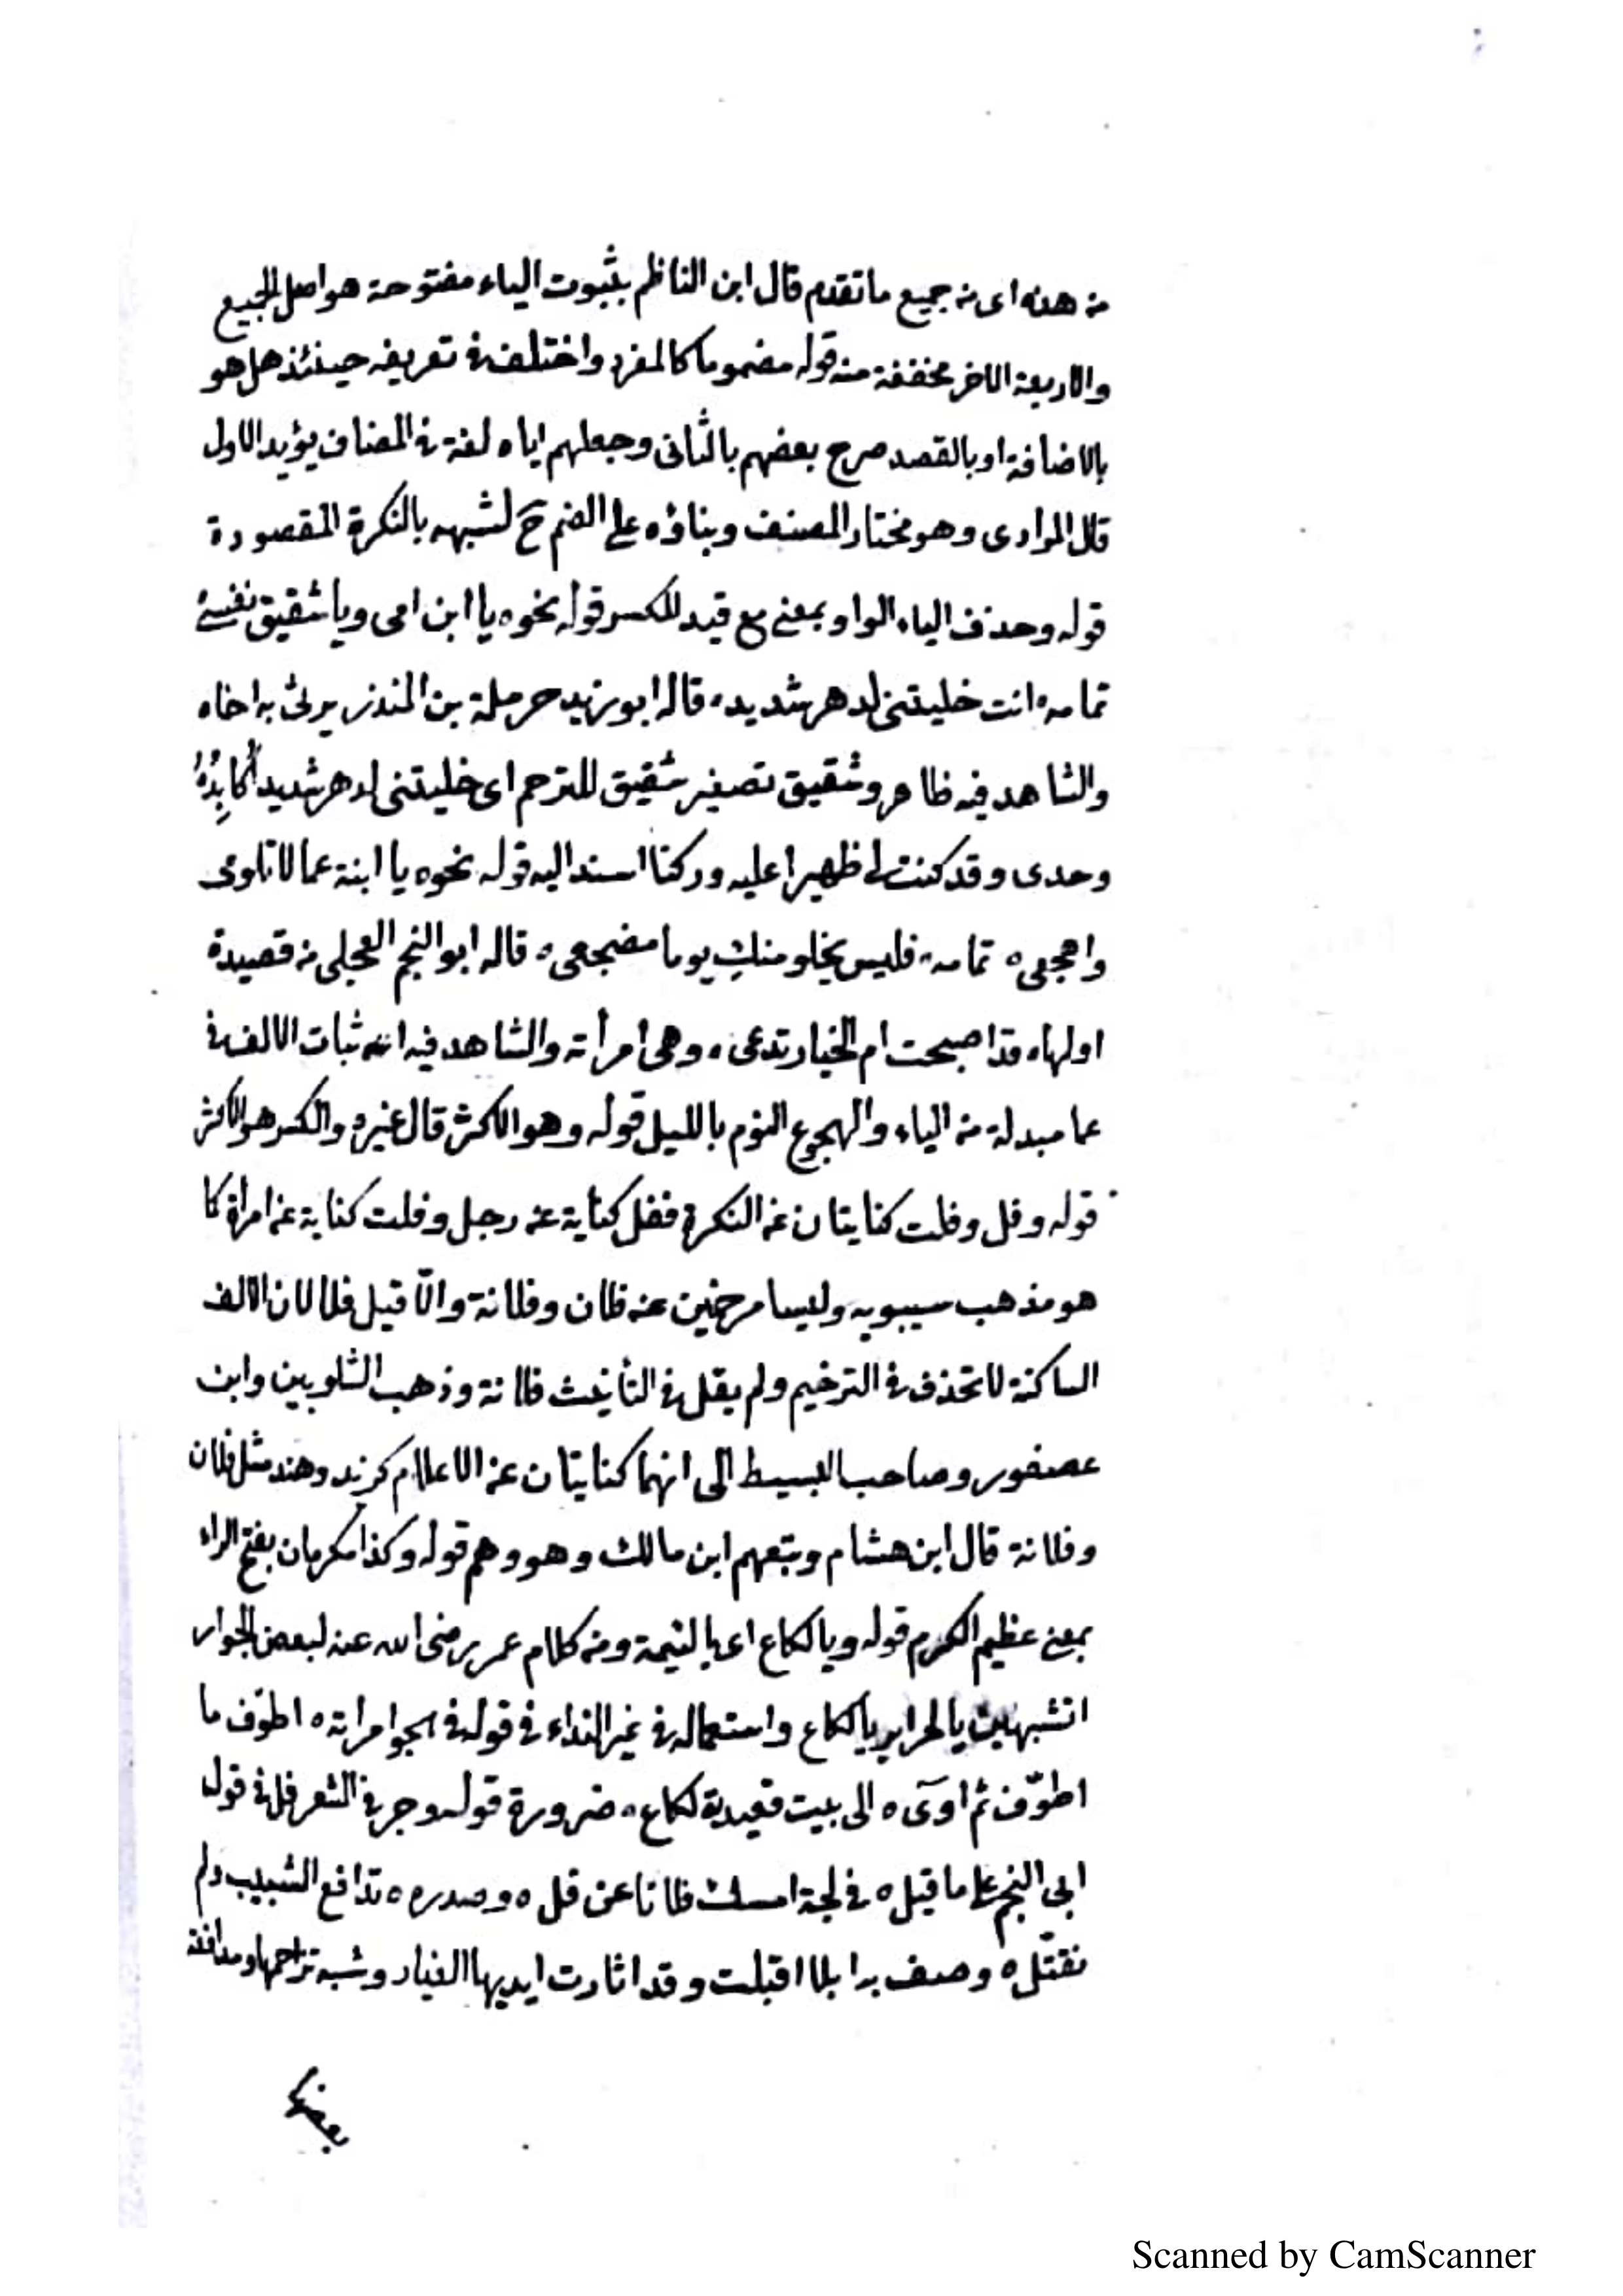 من هذه اى من جميع ما تقدم قال ابن الناظم بثبوت الياء مفتوحة هو اصل الجميع
والاربعة الاخر مخففة منه قوله مضموما كالمفرد واختلف في تعريفه حينئذ هل هو
بالاضافة او بالقصد صرح بعضهم بالثانى وجعلهم اياه لغة في المضاف يؤيد الاول
قال المرادى وهو مختار المصنف وبناؤه على الضم ح لشبهه بالنكرة المقصودة
قوله وحذف الياء الواو بمعنى مع قيد للكسر قوله نحوه يا ابن امى ويا شقيق نفسى
تمامه انت خليتنى لدهر شديد ، قاله ابو زبيد حرملة بن المنذر يرثى به اخاه
والشاهد فيه ظاهر وشقيق تصغير شقيق للترحم اى خليتنى لدهر شديد أكابِدُهُ
وحدى وقد كنت لى ظهيرا عليه وركنا استند اليه قوله نحوه يا ابنة عما لا تلومى
واهجعى ه تمامه ، فليس يخلو منكِ يوما مضجعى ، قاله ابو النجم العجلى من قصيدة
اولها ، قد اصبحت ام الخيار تدعى ، وهى امرأته والشاهد فيه اثبات الالف في
عما مبدلة من الياء والهجوع النوم بالليل قوله وهو الاكثر قال غيره والكسر هو الاكثر
قوله وفل وفلت كنايتان عن النكرة ففل كناية عن رجل وفلت كناية عن امرأة كا
هو مذهب سيبويه وليسا مرخمين عن فلان وفلانة والّا قيل فلا لان الالف
الساكنة لا تحذف في الترخيم ولم يقل في التأنيث فلانة وذهب الشلوبين وابن
عصفور وصاحب البسيط الى انهما كنايتان عن الاعلام كزيد وهند مثل فلان
وفلانة قال ابن هشام وتبعهم ابن مالك وهو وهم قوله وكذا مكرمان بفتح الراء
بمعنى عظيم الكرم قوله ويا لكاع اى يا لئيمة ومن كلام عمر رضى الله عنه لبعض الجوار
اتشبهين بالحراير يا لكاع واستعماله في غير النداء في قوله في هجو امرأته ه اطوّف ما
اطوّف ثم اوى ه الى بيت قعيدته لكاع ، ضرورة قوله وجر في الشعر فل في قول
ابى النجم على ما قيل ه في لجة امسك فلانا عن فل ه وصدره ه تدافع الشيب ولم
تقتّل ه وصف به ابلا اقبلت وقد اثارت ايديها الغبار وشبه تزاحمها ومدافعة
بعضها
Scanned by CamScanner